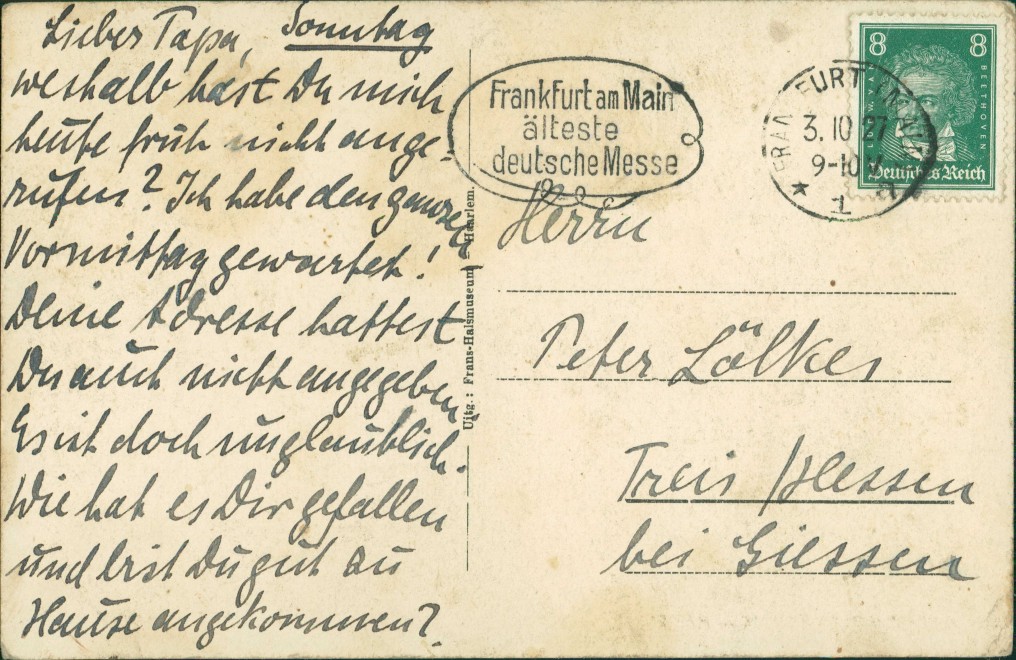 Sonntag
Lieber Papa,
weshalb hast Du mich
heute früh nicht ange-
rufen? Ich habe den ganzen
Vormittag gewartet!
Deine Adresse hattest
Du auch nicht angegeben.
Es ist doch unglaublich.
Wie hat es Dir gefallen
und bist Du gut zu
Hause angekommen?
Uitg.: Frans-Halsmuseum - Haarlem.
Frankfurt am Main
älteste
deutsche Messe
FRANKFURT (MAIN)
3.10.27
9-10 V
★ 1
8 8
LUDW. VAN BEETHOVEN
Deutsches Reich
Herrn
Peter Lölkes
Treis / Hessen
bei Giessen